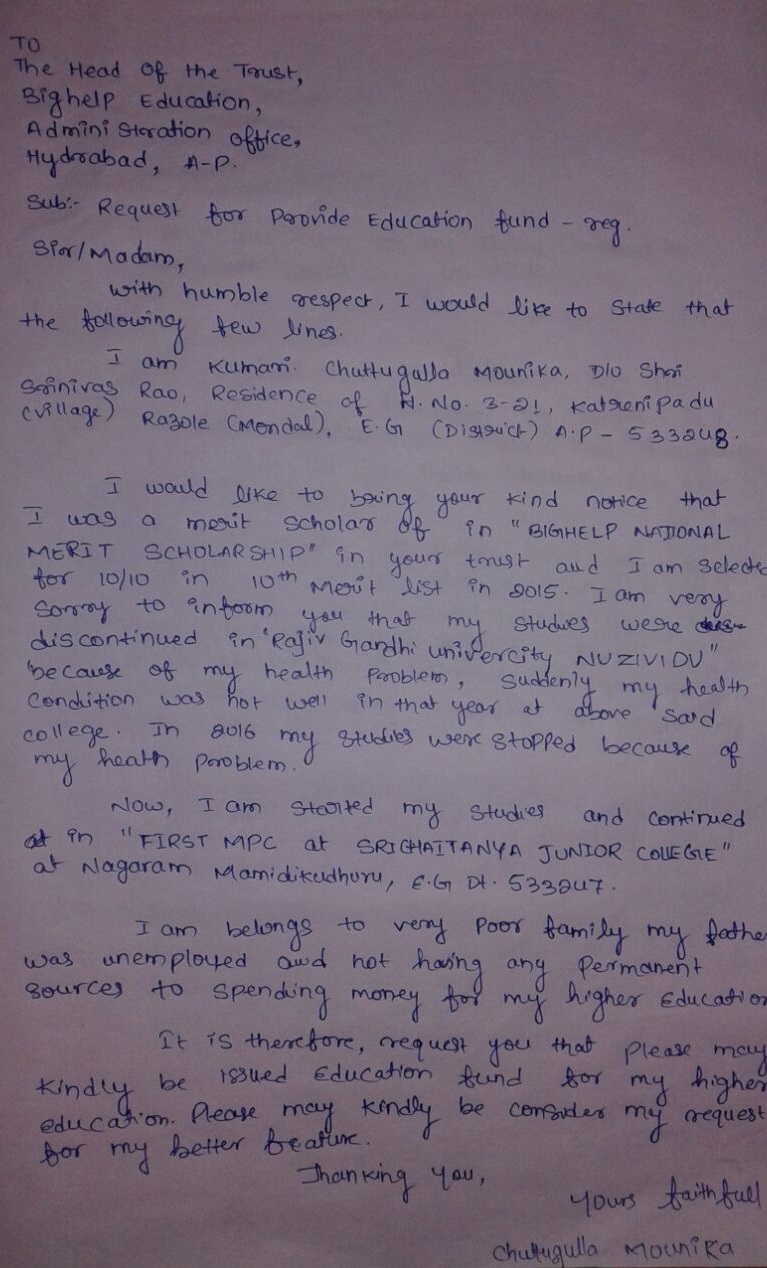 TO
The Head of the Trust,
Bighelp Education,
Admini stration office,
Hydrabad, A-P.
Sub:- Request for Provide Education fund - reg.
Sir/Madam,
with humble respect, I would like to state that
the following few lines.
I am Kumari. Chuttugulla Mounika, D/o Shri
Srinivas Rao, Residence of H.No. 3-21, Katrenipadu
(village) Razole (Mondal), E.G (District) A.P - 533248.
I would like to bring your kind notice that
I was a merit scholar of in "BIGHELP NATIONAL
MERIT SCHOLARSHIP" in your trust and I am selecte
for 10/10 in 10th Merit list in 2015. I am very
Sorry to inform you that my studies were
discontinued in "Rajiv Gandhi univercity NUZIVIDU"
because of my health Problem, Suddenly my health
Condition was not well in that year at above said
college. In 2016 my studies were stopped because of
my heath problem.
Now, I am started my studies and continued
at in "FIRST MPC at SRICHAITANYA JUNIOR COLLEGE"
at Nagaram Mamidikudhuru, E.G Dt. 533247.
I am belongs to very poor family my fathe
was unemployed and not having any Permanent
Sources to spending money for my higher Education
It is therefore, request you that please may
kindly be issued Education fund for my higher
education. Please may kindly be consider my request
for my better feature.
Thanking you,
yours faithfull
Chuttugulla Mounika